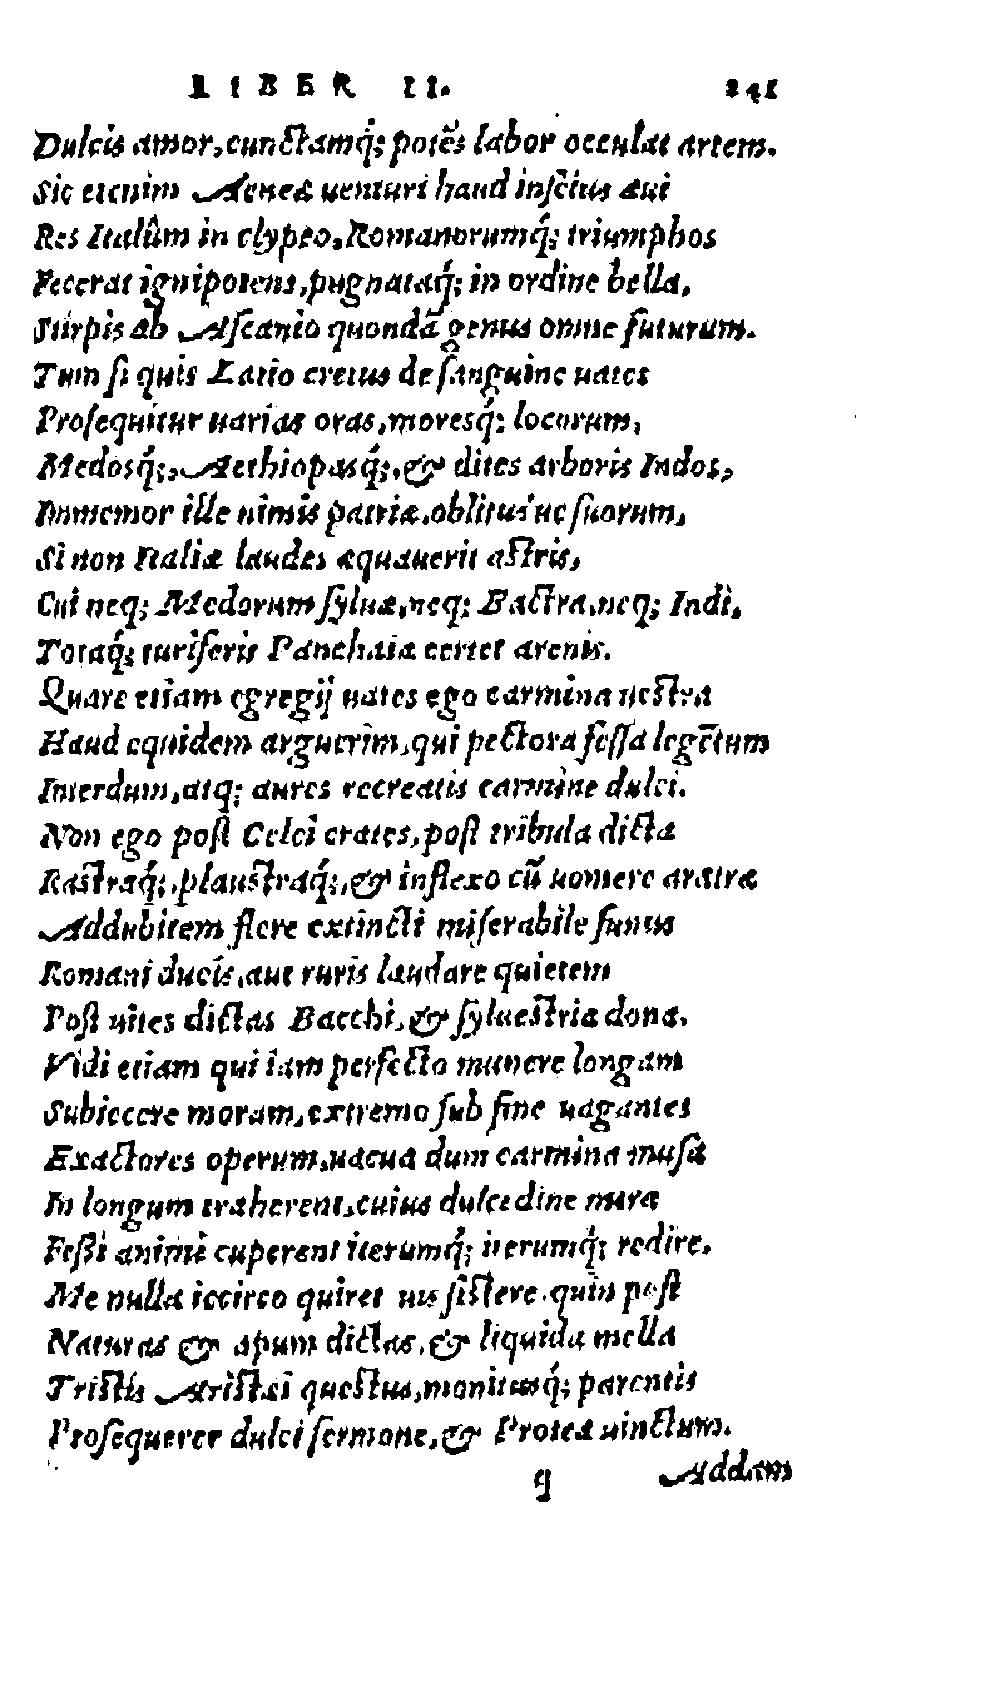 LIBER II. 241
Dulcis amor, cunctamq́; potẽs labor occulat artem.
Sic etenim Aeneæ uenturi haud inscius æui
Res Italûm in clypeo, Romanorumq́; triumphos
Fecerat ignipotens, pugnataq́; in ordine bella,
Stirpis ab Ascanio quondã genus omne futurum.
Tum si quis Latio cretus de sanguine uates
Prosequitur uarias oras, moresq́; locorum,
Medosq́;, Aethiopasq́;, & dites arboris Indos,
Immemor ille nimis patriæ, oblitus'ue suorum,
Si non Italiæ laudes æquauerit astris,
Cui neq; Medorum syluæ, neq; Bactra, neq; Indi,
Totaq́; turiferis Panchaia certet arenis.
Quare etiam egregij uates ego carmina uestra
Haud equidem arguerim, qui pectora fessa legẽtum
Interdum, atq; aures recreatis carmine dulci.
Non ego post Celei crates, post tribula dicta
Rastraq́;, plaustraq́;, & inflexo cũ uomere aratra
Addubitem flere extincti miserabile funus
Romani ducis, aut ruris laudare quietem
Post uites dictas Bacchi, & syluestria dona.
Vidi etiam qui iam perfecto munere longam
Subiecere moram, extremo sub fine uagantes
Exactores operum, uacua dum carmina musa
In longum traherent, cuius dulcedine mira
Fessi animi cuperent iterumq́; iterumq́; redire.
Me nulla iccirco quiret uis sistere, quin post
Naturas & apum dictas, & liquida mella
Tristis Aristæi questus, monitusq́; parentis
Prosequerer dulci sermone, & Protea uinctum.
q Addam